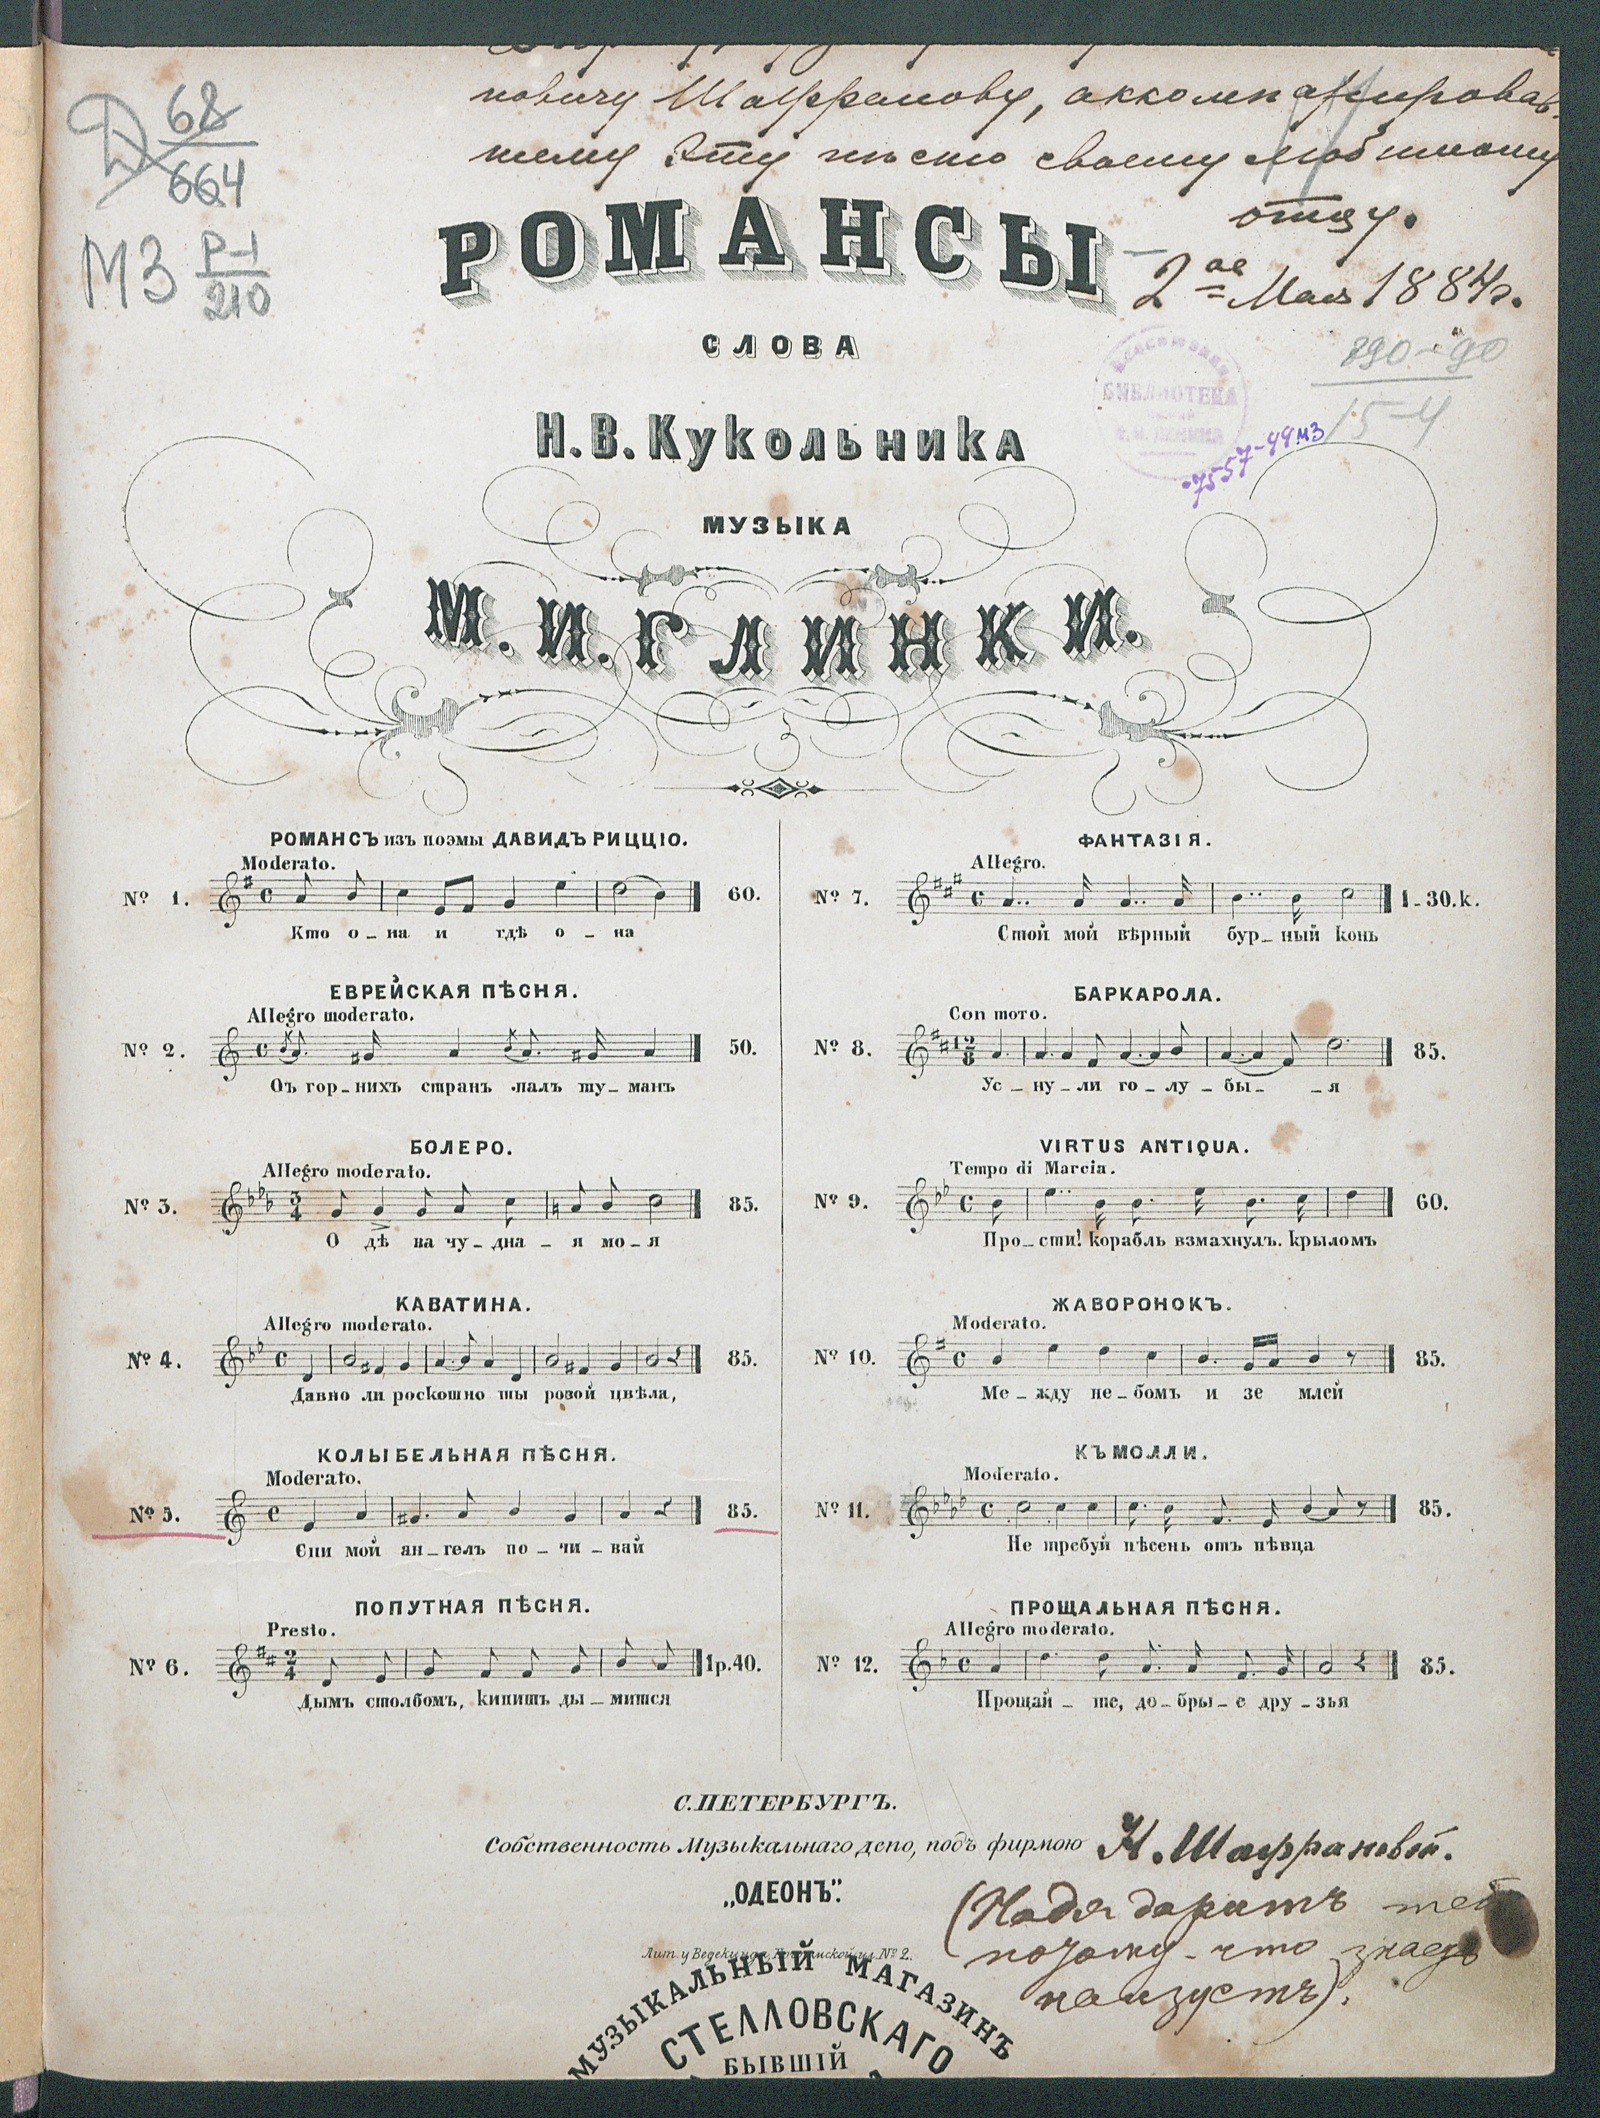 новичу Шаффранову, аккомпанировав-
шему эту пѣсню своему любимому
отцу.
2ое Мая 1884г.
68
664
М3 Р-1
210
РОМАНСЫ
СЛОВА
Н.В.Кукольника
БИБЛИОТЕКА
7557-49м3
15-4
МУЗЫКА
М.И.ГЛИНКИ.
РОМАНСЪ изъ поэмы ДАВИДЪ РИЦЦІО.
Moderato.
№ 1.
60.
Кто о_на и гдѣ о_на
ЕВРЕЙСКАЯ ПѢСНЯ.
Allegro moderato.
№ 2.
50.
Съ гор_нихъ странъ палъ ту_манъ
БОЛЕРО.
Allegro moderato.
№ 3.
3
4
85.
О дѣ ва чу_дна_я мо_я
КАВАТИНА.
Allegro moderato.
№ 4.
85.
Давно ли роскошно ты розой цвѣла,
КОЛЫБЕЛЬНАЯ ПѢСНЯ.
Moderato.
№ 5.
85.
Спи мой ан_гелъ по_чи_вай
ПОПУТНАЯ ПѢСНЯ.
Presto.
№ 6.
2
4
1р.40.
Дымъ столбомъ, кипитъ ды_мится
ФАНТАЗІЯ.
Allegro.
№ 7.
1_30.k.
Стой мой вѣрный бур_ный конь
БАРКАРОЛА.
Con moto.
№ 8.
12
8
85.
Ус_ну_ли го_лу_бы_ _я
VIRTUS ANTIQUA.
Tempo di Marcia.
№ 9.
60.
Про_сти! корабль взмахнулъ. крыломъ
ЖАВОРОНОКЪ.
Moderato.
№ 10.
85.
Ме_жду не_бомъ и зе млей
КЪ МОЛЛИ.
Moderato.
№ 11.
85.
Не требуй пѣсень отъ пѣвца
ПРОЩАЛЬНАЯ ПѢСНЯ.
Allegro moderato.
№ 12.
85.
Прощай_те, до_бры_е дру_зья
С.ПЕТЕРБУРГЪ.
Собственность Музыкальнаго депо, подъ фирмою
„ОДЕОНЪ".
Н. Шаффрановой.
(Надя даритъ теб
потому-что знаетъ
наизусть).
Лит. у Ведекинда, ул. № 2.
МУЗЫКАЛЬНЫЙ МАГАЗИНЪ
СТЕЛЛОВСКАГО
БЫВШІЙ